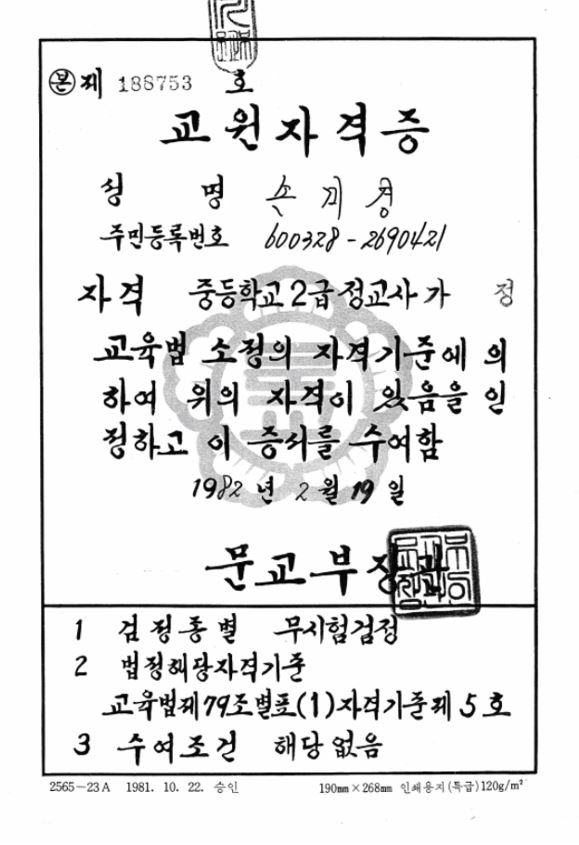 본 제 188753 호
교원자격증
성 명 손 지 경
주민등록번호 600328-2690421
자격 중등학교2급정교사 가 정
교육법 소정의 자격기준에 의
하여 위의 자격이 있음을 인
정하고 이 증서를 수여함
1982년 2월 19일
문교부장관
1 검정종별 무시험검정
2 법정해당자격기준
교육법제79조별표(1)자격기준제5호
3 수여조건 해당없음
2565-23A 1981. 10. 22. 승인 190mm×268mm 인쇄용지(특급)120g/m²